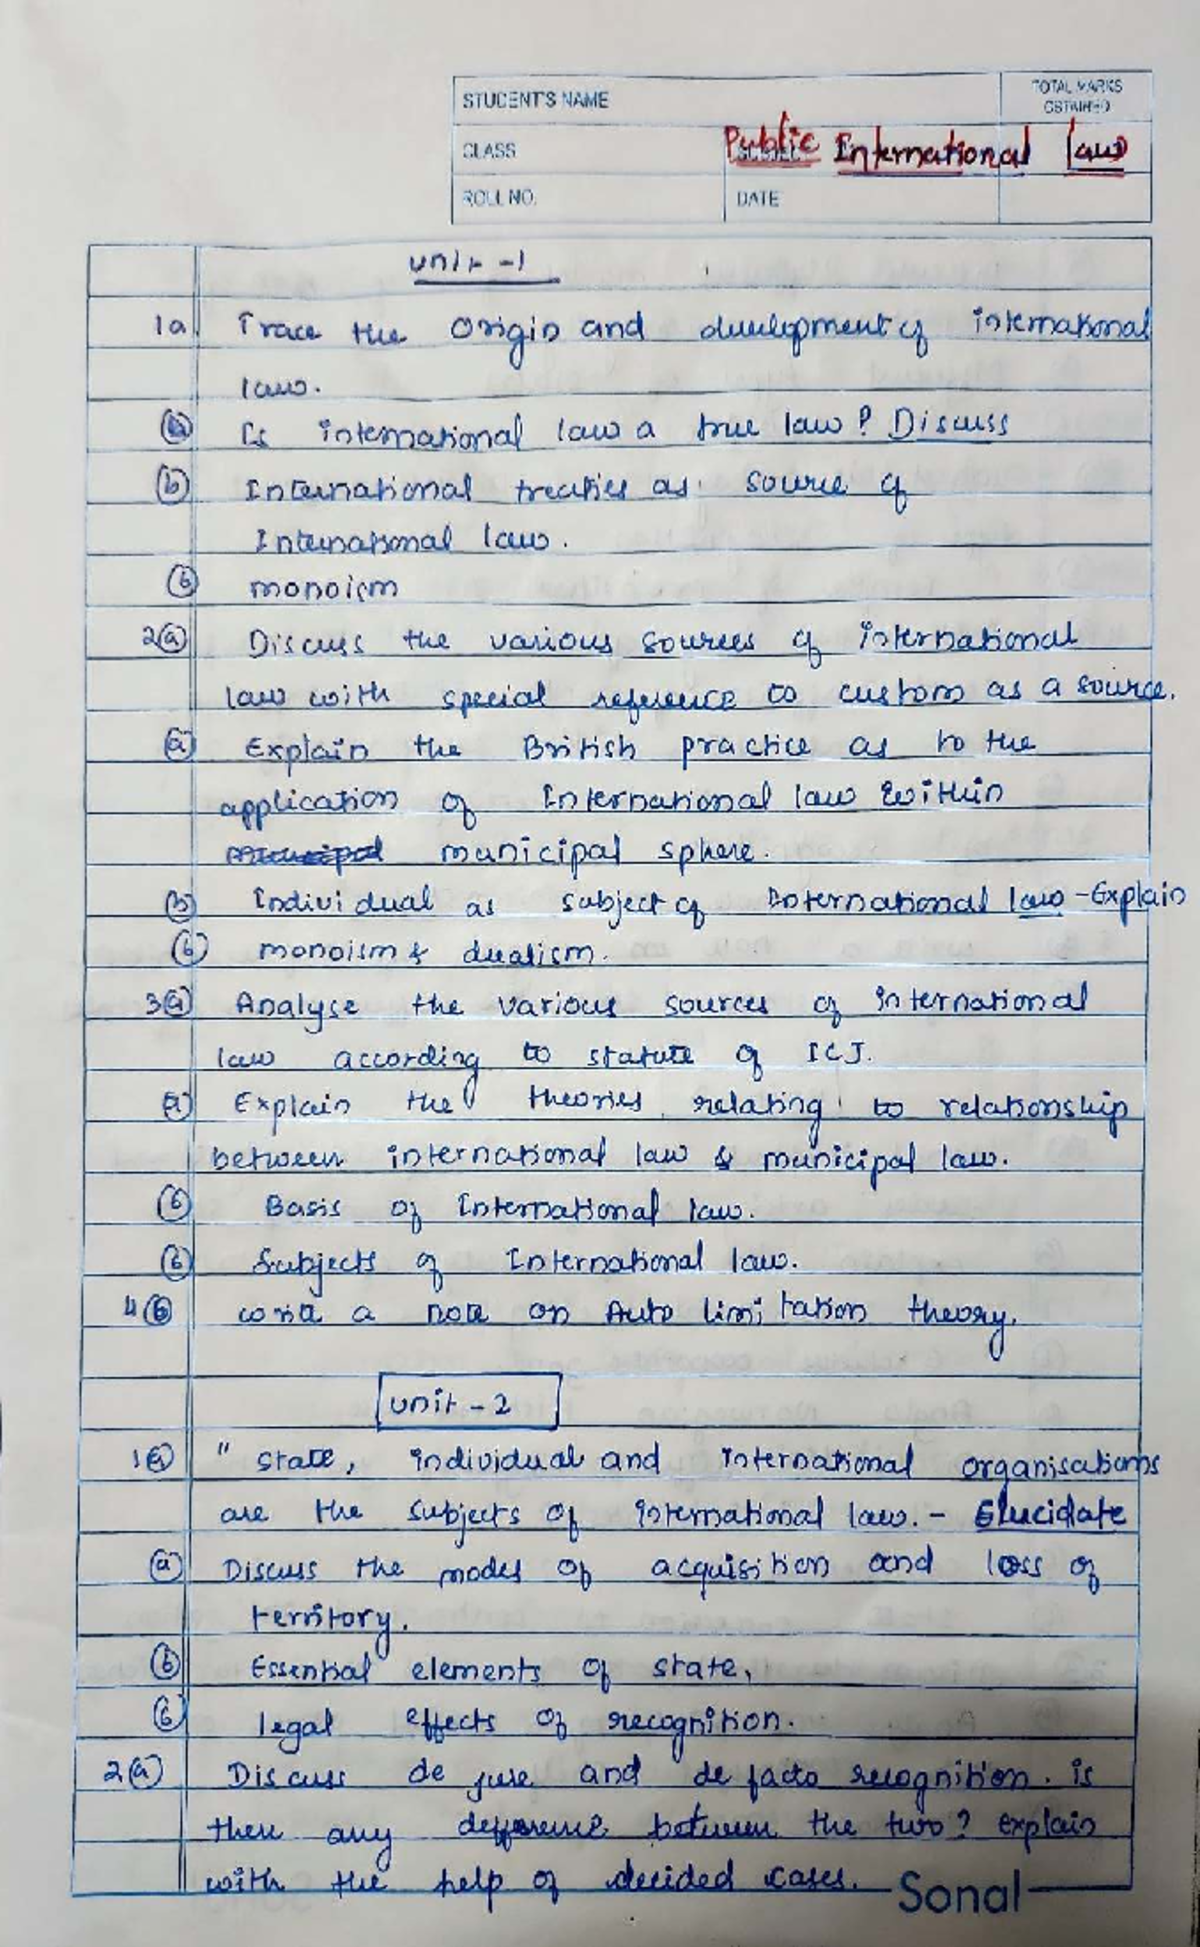 STUDENT'S NAME
TOTAL MARKS
OBTAINED
CLASS
Public International law
ROLL NO.
DATE
Unit -1
1a. Trace the Origin and development of international
law.
(b) Is international law a true law? Discuss
(b) International treaties as source of
International law.
(b) monoism
2(a) Discuss the various sources of international
law with special reference to custom as a source.
(a) Explain the British practice as to the
application of International law within
municipal sphere.
(b) Individual as subject of International law -Explain
(b) monoism & dualism.
3(a) Analyse the various sources of international
law according to statute of ICJ.
(a) Explain the theories relating to relationship
between international law & municipal law.
(b) Basis of International law.
(b) Subjects of International law.
4(b) write a note on Auto limitation theory.
Unit - 2
1(a) " State, individual and international organisations
are the subjects of international law. - Elucidate
(a) Discuss the modes of acquisition and loss of
territory.
(b) Essential elements of state,
(b) legal effects of recognition.
2(a) Discuss de jure and de facto recognition. is
there any difference between the two? explain
with the help of decided cases.
Sonal